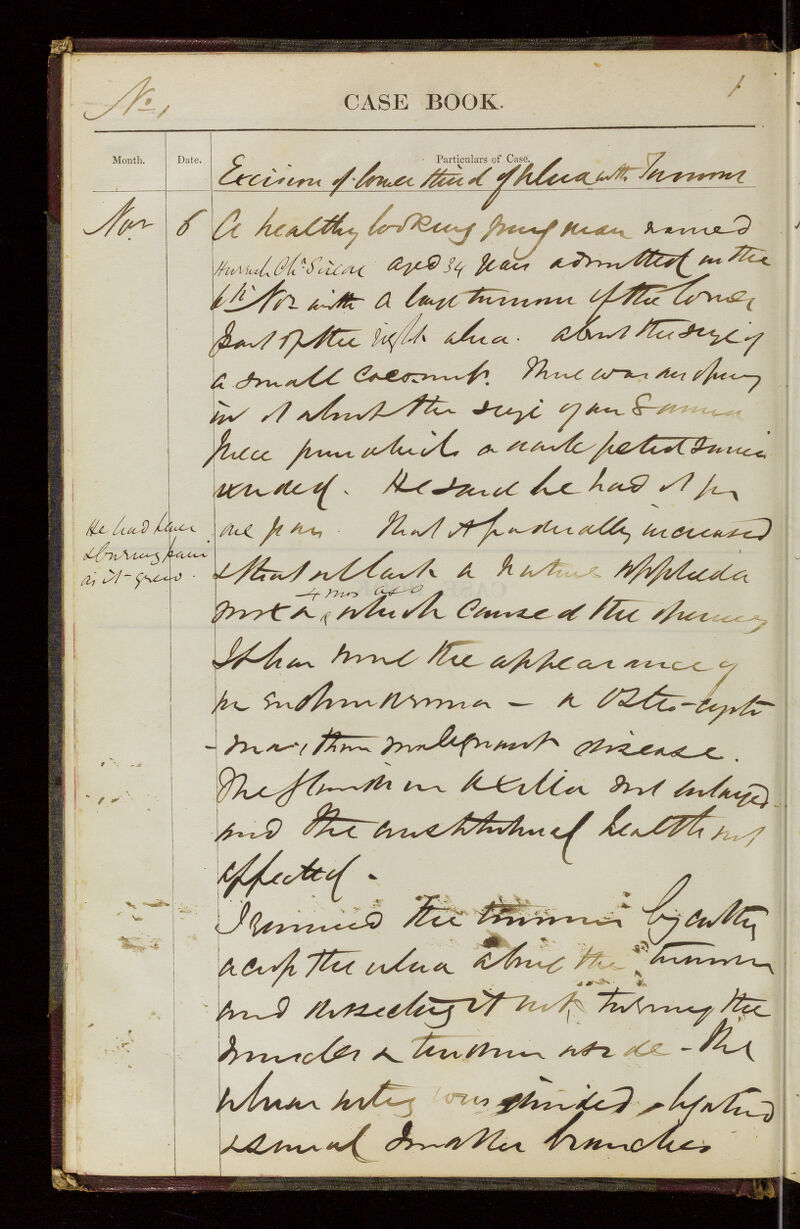 No. 1
CASE BOOK.
1
Month.
Date.
Particulars of Case.
Excision of lower third of ulna with Tumour
Nov 6 A healthy looking young man named
aged 34 years admitted on the
6th Nov with a large tumour of the lower
part of the right ulna. about the size of
a small cocoanut. There was an opening
in it about the size of an 8 anna
piece from which a dark fetid sanies
exuded. He said he had it for
He had fever
& burning pain
as it grew.
one year. That it gradually increased
& that at last a native applied a
4 mos ago
which caused the opening
It has more the appearance of
an Enchondroma – a Osteo-cysto
-ma, than malignant disease.
The glands in axilla not enlarged
and the constitutional health not
affected.
I removed the tumour by cutting
across the ulna above the tumour
and dissecting it out, turning the
muscles & tendons aside – The
ulnar artery was divided & ligatured
& several smaller branches